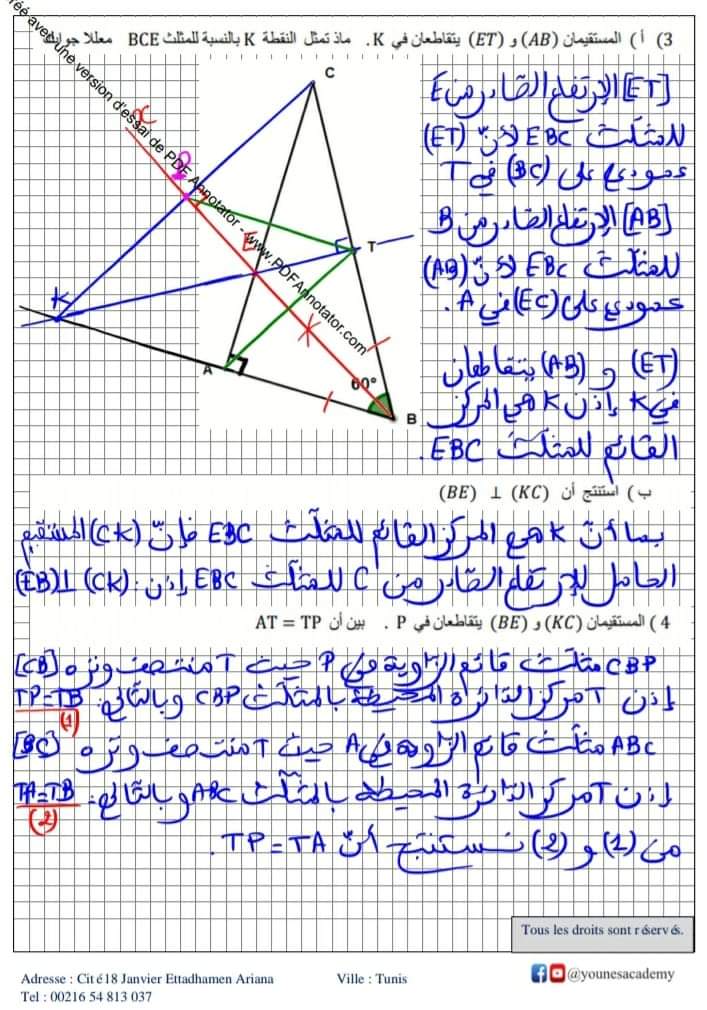 3) أ) المستقيمان (AB) و (ET) يتقاطعان في K. ماذا تمثل النقطة K بالنسبة للمثلث BCE معللا جوابك
éé avec une version d'essai de PDF Annotator - www.PDFAnnotator.com
C
x
P
E
T
K
A
60°
B
[ET] الإرتفاع الصادر من E
للمثلّث EBC لأنّ (ET)
عمودي على (BC) في T
[AB] الإرتفاع الصادر من B
للمثلّث EBC لأنّ (AB)
عمودي على (EC) في A.
(ET) و (AB) يتقاطعان
في K إذن K هي المركز
القائم للمثلّث EBC.
ب) استنتج أن (BE) ⊥ (KC)
بما أنّ K هي المركز القائم للمثلّث EBC فإنّ (CK) المستقيم
الحامل للإرتفاع الصادر من C للمثلّث EBC إذن: (EB)⊥(CK)
4) المستقيمان (KC) و (BE) يتقاطعان في P. بين أن AT = TP
CBP مثلّث قائم الزاوية في P حيث T منتصف وتره [CB]
إذن T مركز الدّائرة المحيطة بالمثلّث CBP وبالتّالي: TP=TB
(1)
ABC مثلّث قائم الزّاوية في A حيث T منتصف وتره [BC]
إذن T مركز الدّائرة المحيطة بالمثلّث ABC وبالتّالي: TA=TB
(2)
من (1) و (2) نستنتج أنّ TP=TA.
Tous les droits sont réservés.
Adresse : Cité 18 Janvier Ettadhamen Ariana Ville : Tunis @younesacademy
Tel : 00216 54 813 037